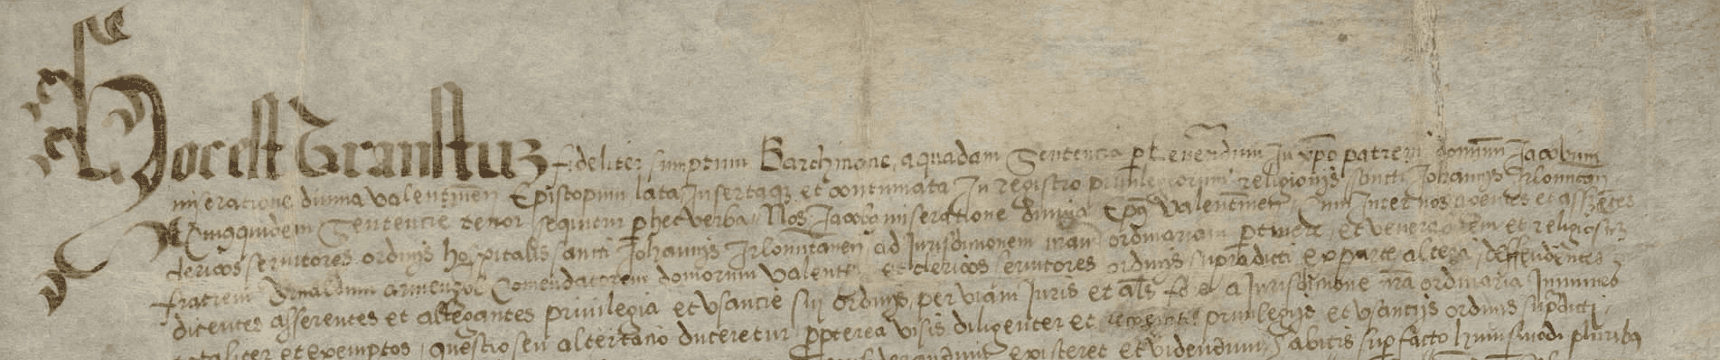 Hoc est transsu(m)ptu(m) fideliter sumptum Barchinone, a quadam sententia per Reverendum In xpo patrem domnum Jacobum
miseratione divina valentinen Episcopum lata Insertaque et continuata In registro privilegiorum religionis sancti Johannis Irlomitan
Cuiaquidem Sententie tenor sequitur per hec verba Nos Jacobus miseratione divina Epus valentinen Cum inter nos agentes et asserentes
clericos servitores ordinis hospitalis sancti Johannis Irlomitanen ad Jurisdictionem nram ordinariam pertinere, et venerabilem et religiosum
fratrem Arnaldum comendatorem domorum valentie et clericos servitores ordinis supradicti ex parte altera deffendentes
dicentes asserentes et allegantes privilegia et usancie sui ordinis, per viam Juris et als fore a Jurisdictione nra ordinaria Immunes
et exemptos, questio seu altercatio duceretur propterea visis diligenter et privilegiis et usanciis ordinis supdicti
existeret et videndum, habitis sup facto huiusmodi pluribus